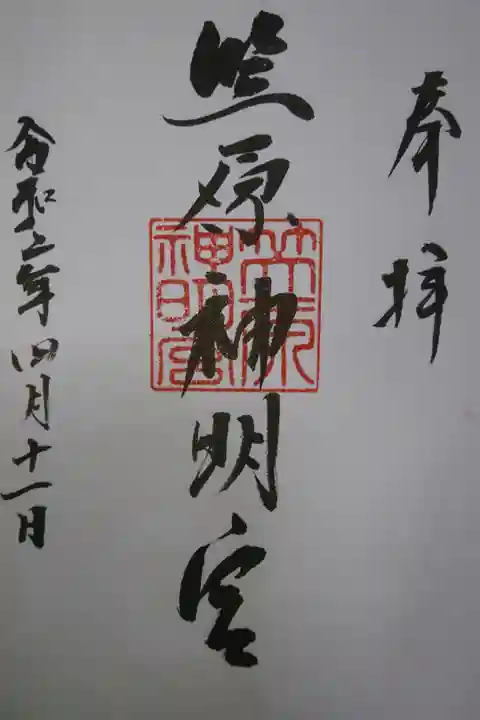 奉拝
笠原神明宮
令和三年四月十一日
笠原
神明宮